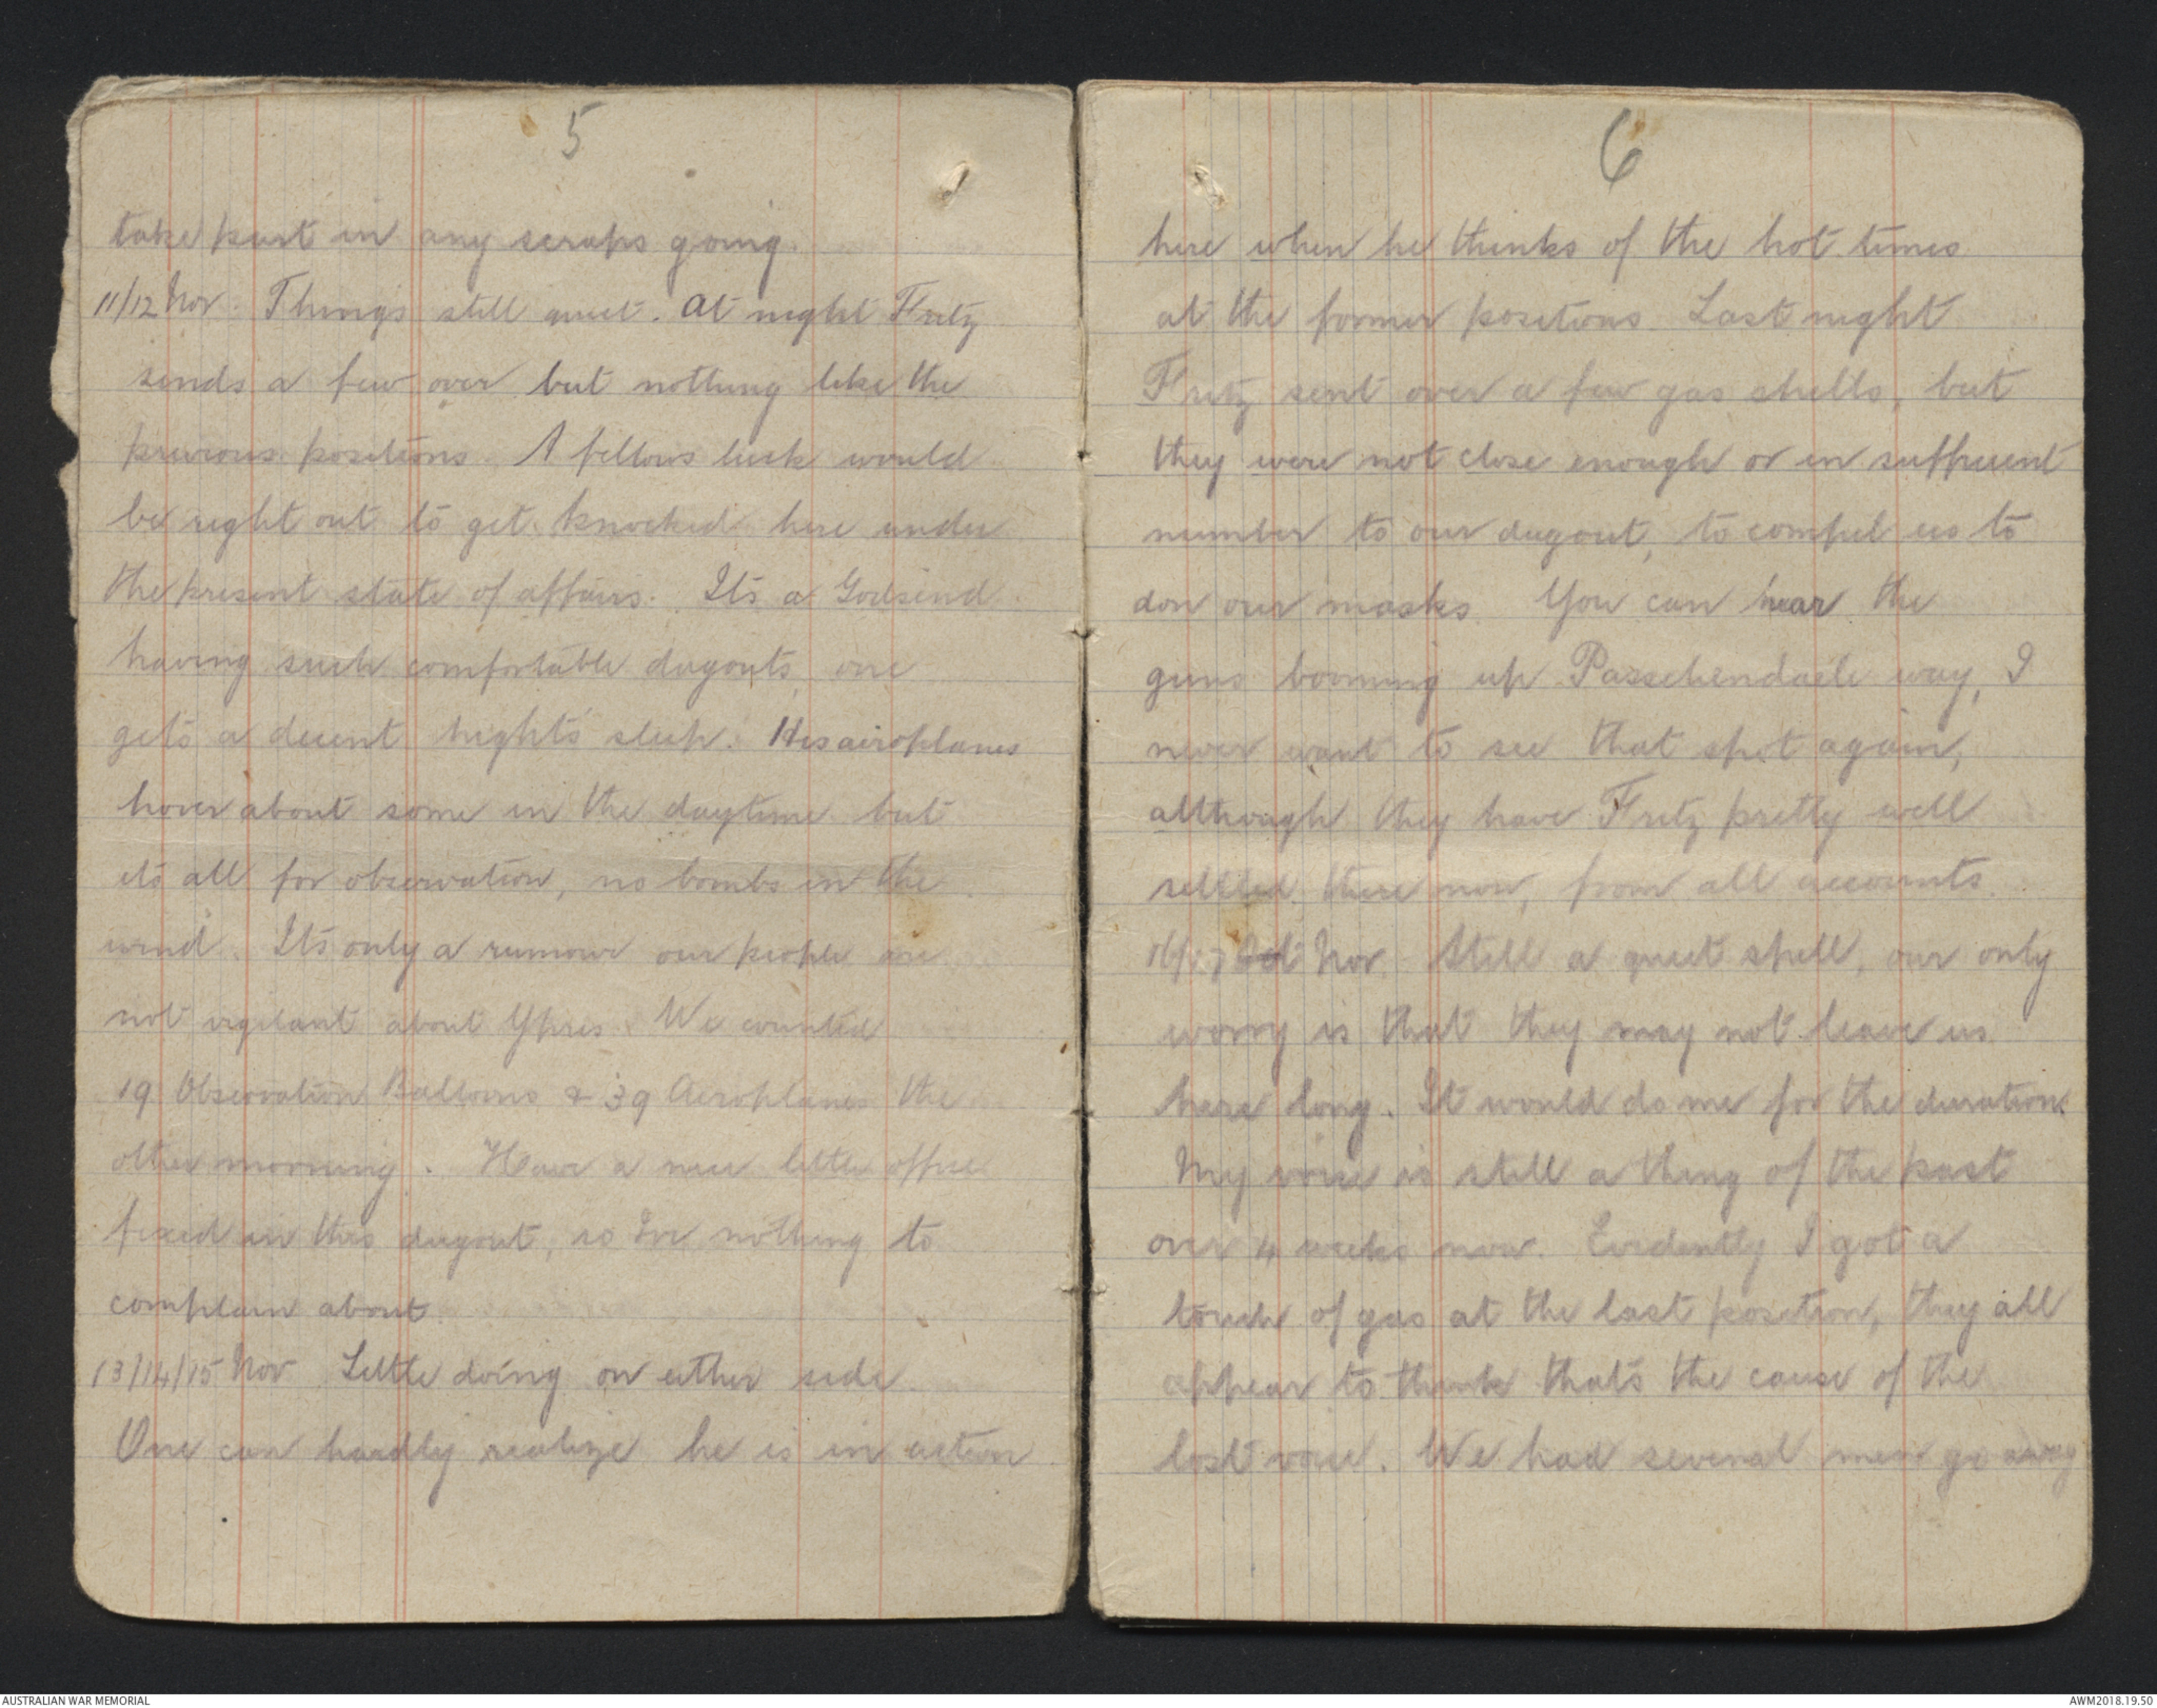 5
take part in any scraps going.
11/12 Nov. Things still quiet. At night Fritz
sends a few over but nothing like the
previous positions. A fellows luck would
be right out to get knocked here under
the present state of affairs. Its a Godsend
having such comfortable dugouts, one
gets a decent nights sleep. His airoplanes
hover about some in the daytime but
its all for observation, no bombs in the
wind. Its only a rumour our people are
not vigilant about Ypres. We counted
19 Observation Balloons & 39 Aeroplanes the
other morning. Have a nice little office
fixed in this dugout, so Ive nothing to
complain about.
13/14/15 Nov Little doing on either side.
One can hardly realize he is in action
6
here when he thinks of the hot times
at the former positions. Last night
Fritz sent over a few gas shells, but
they were not close enough or in suffficient
number to our dugout, to compel us to
don our masks. You can hear the
guns booming up Passchendaele way, I
never want to see that spot again,
although they have Fritz pretty well
settled there now, from all accounts.
16/17 Oct Nov. Still a quiet spell, our only
worry is that they may not leave us
here long. It would do me for the duration.
My voice is still a thing of the past
over 4 weeks now. Evidently I got a
touch of gas at the last position, they all
appear to think thats the cause of the
lost voice. We had several men go away
AUSTRALIAN WAR MEMORIAL
AWM2018.19.50